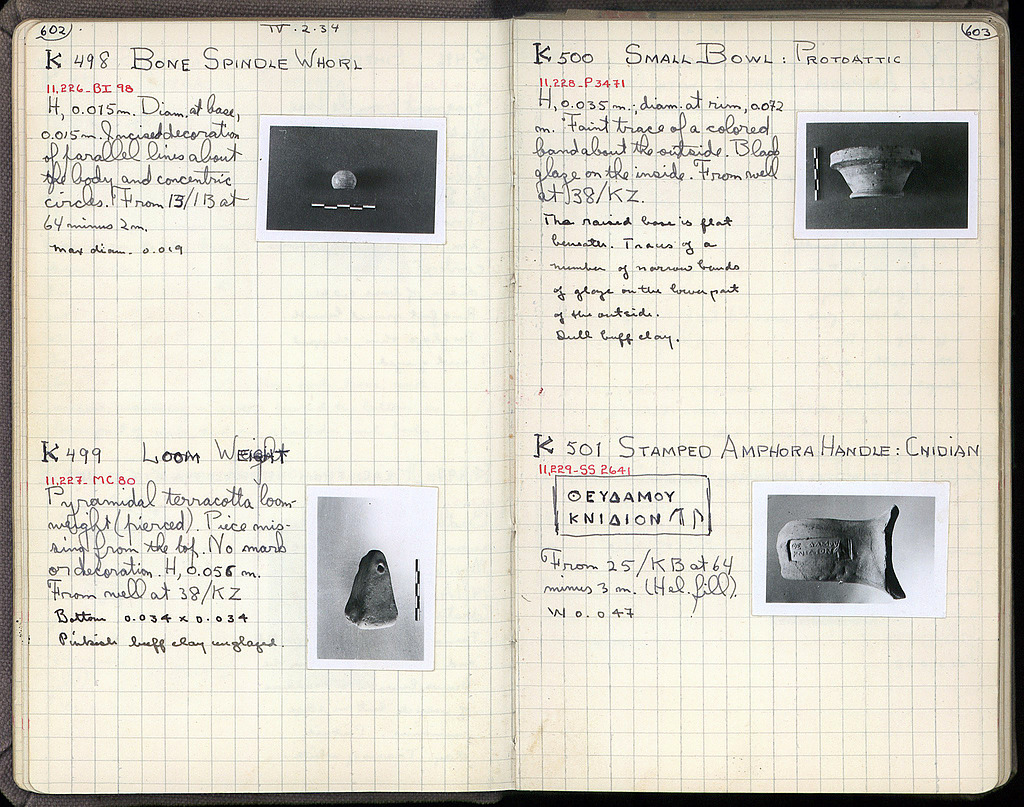 602
IV.2.34
K 498 BONE SPINDLE WHORL
11,226-BI 98
H, 0.015 m. Diam. at base,
0.015 m. Incised decoration
of parallel lines about
the body and concentric
circles. From 13/IB at
64 minus 2m.
Max diam. 0.019
K 499 LOOM WEIGHT
11,227-MC 80
Pyramidal terracotta loom-
weight (pierced). Piece mis-
sing from the top. No mark
or decoration. H, 0.056 m.
From well at 38/KZ
Bottom 0.034 x 0.034
Pinkish buff clay unglazed.
603
K 500 SMALL BOWL: PROTOATTIC
11,228-P 3471
H, 0.035 m.; diam. at rim, 0.072
m. Faint trace of a colored
band about the outside. Black
glaze on the inside. From well
at 38/KZ.
The raised base is flat
beneath. Traces of a
number of narrow bands
of glaze on the lower part
of the outside.
Dull buff clay.
K 501 STAMPED AMPHORA HANDLE: CNIDIAN
11,229-SS 2641
ΘΕΥΔΑΜΟΥ
ΚΝΙΔΙΟΝ
From 25/KB at 64
minus 3 m. (Hel. fill).
W 0.047